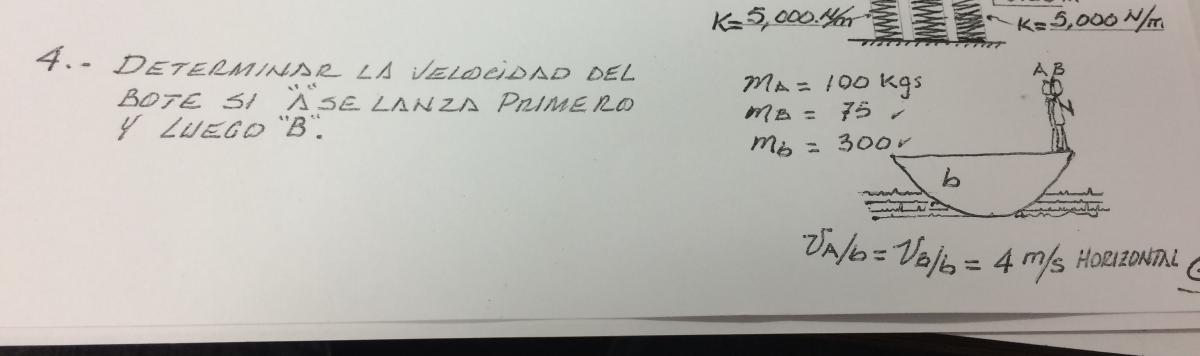 K= 5,000 N/m
K= 5,000 N/m
4.- DETERMINAR LA VELOCIDAD DEL
BOTE SI "A" SE LANZA PRIMERO
Y LUEGO "B".
mA = 100 Kgs
mB = 75 ✓
mb = 300 ✓
A B
b
VA/b = VB/b = 4 m/s HORIZONTAL